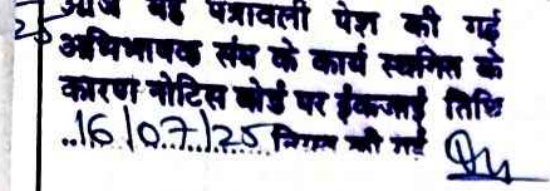 25 आज यह पत्रावली पेश की गई
अभिभाषक संघ के कार्य स्थगित के
कारण नोटिस बोर्ड पर ईकजाई तिथि
..16/07/25 नियत की गई